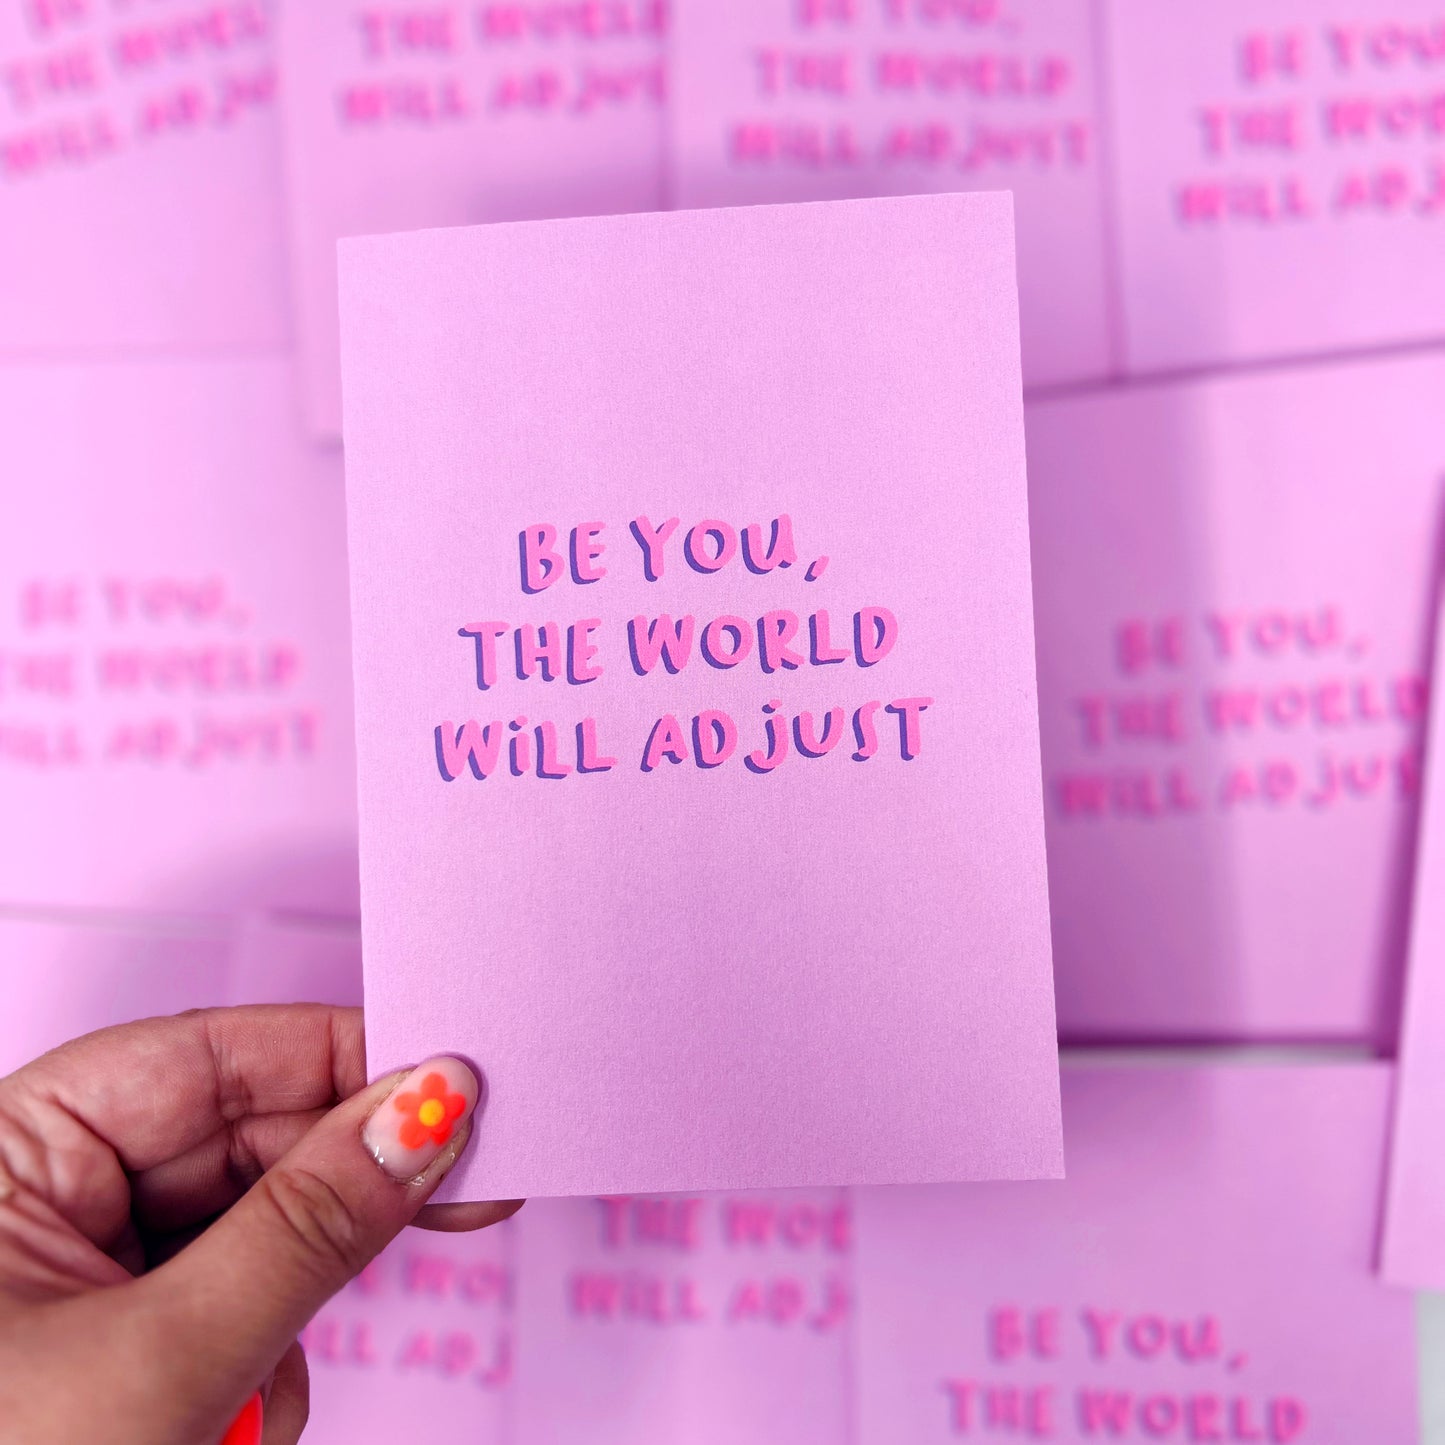 BE YOU,
THE WORLD
WiLL ADjUST